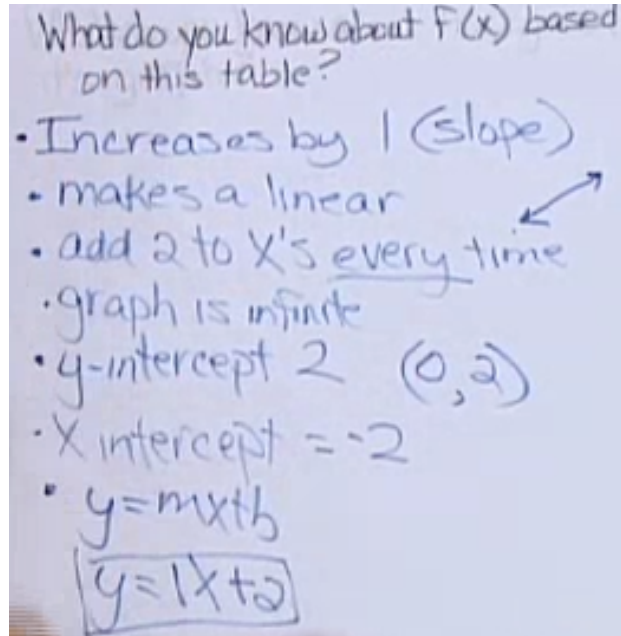 What do you know about f(x) based
on this table?
• Increases by 1 (slope)
• makes a linear
• add 2 to X's every time
• graph is infinite
• y-intercept 2 (0,2)
• X intercept = -2
• y=mx+b
y=1x+2